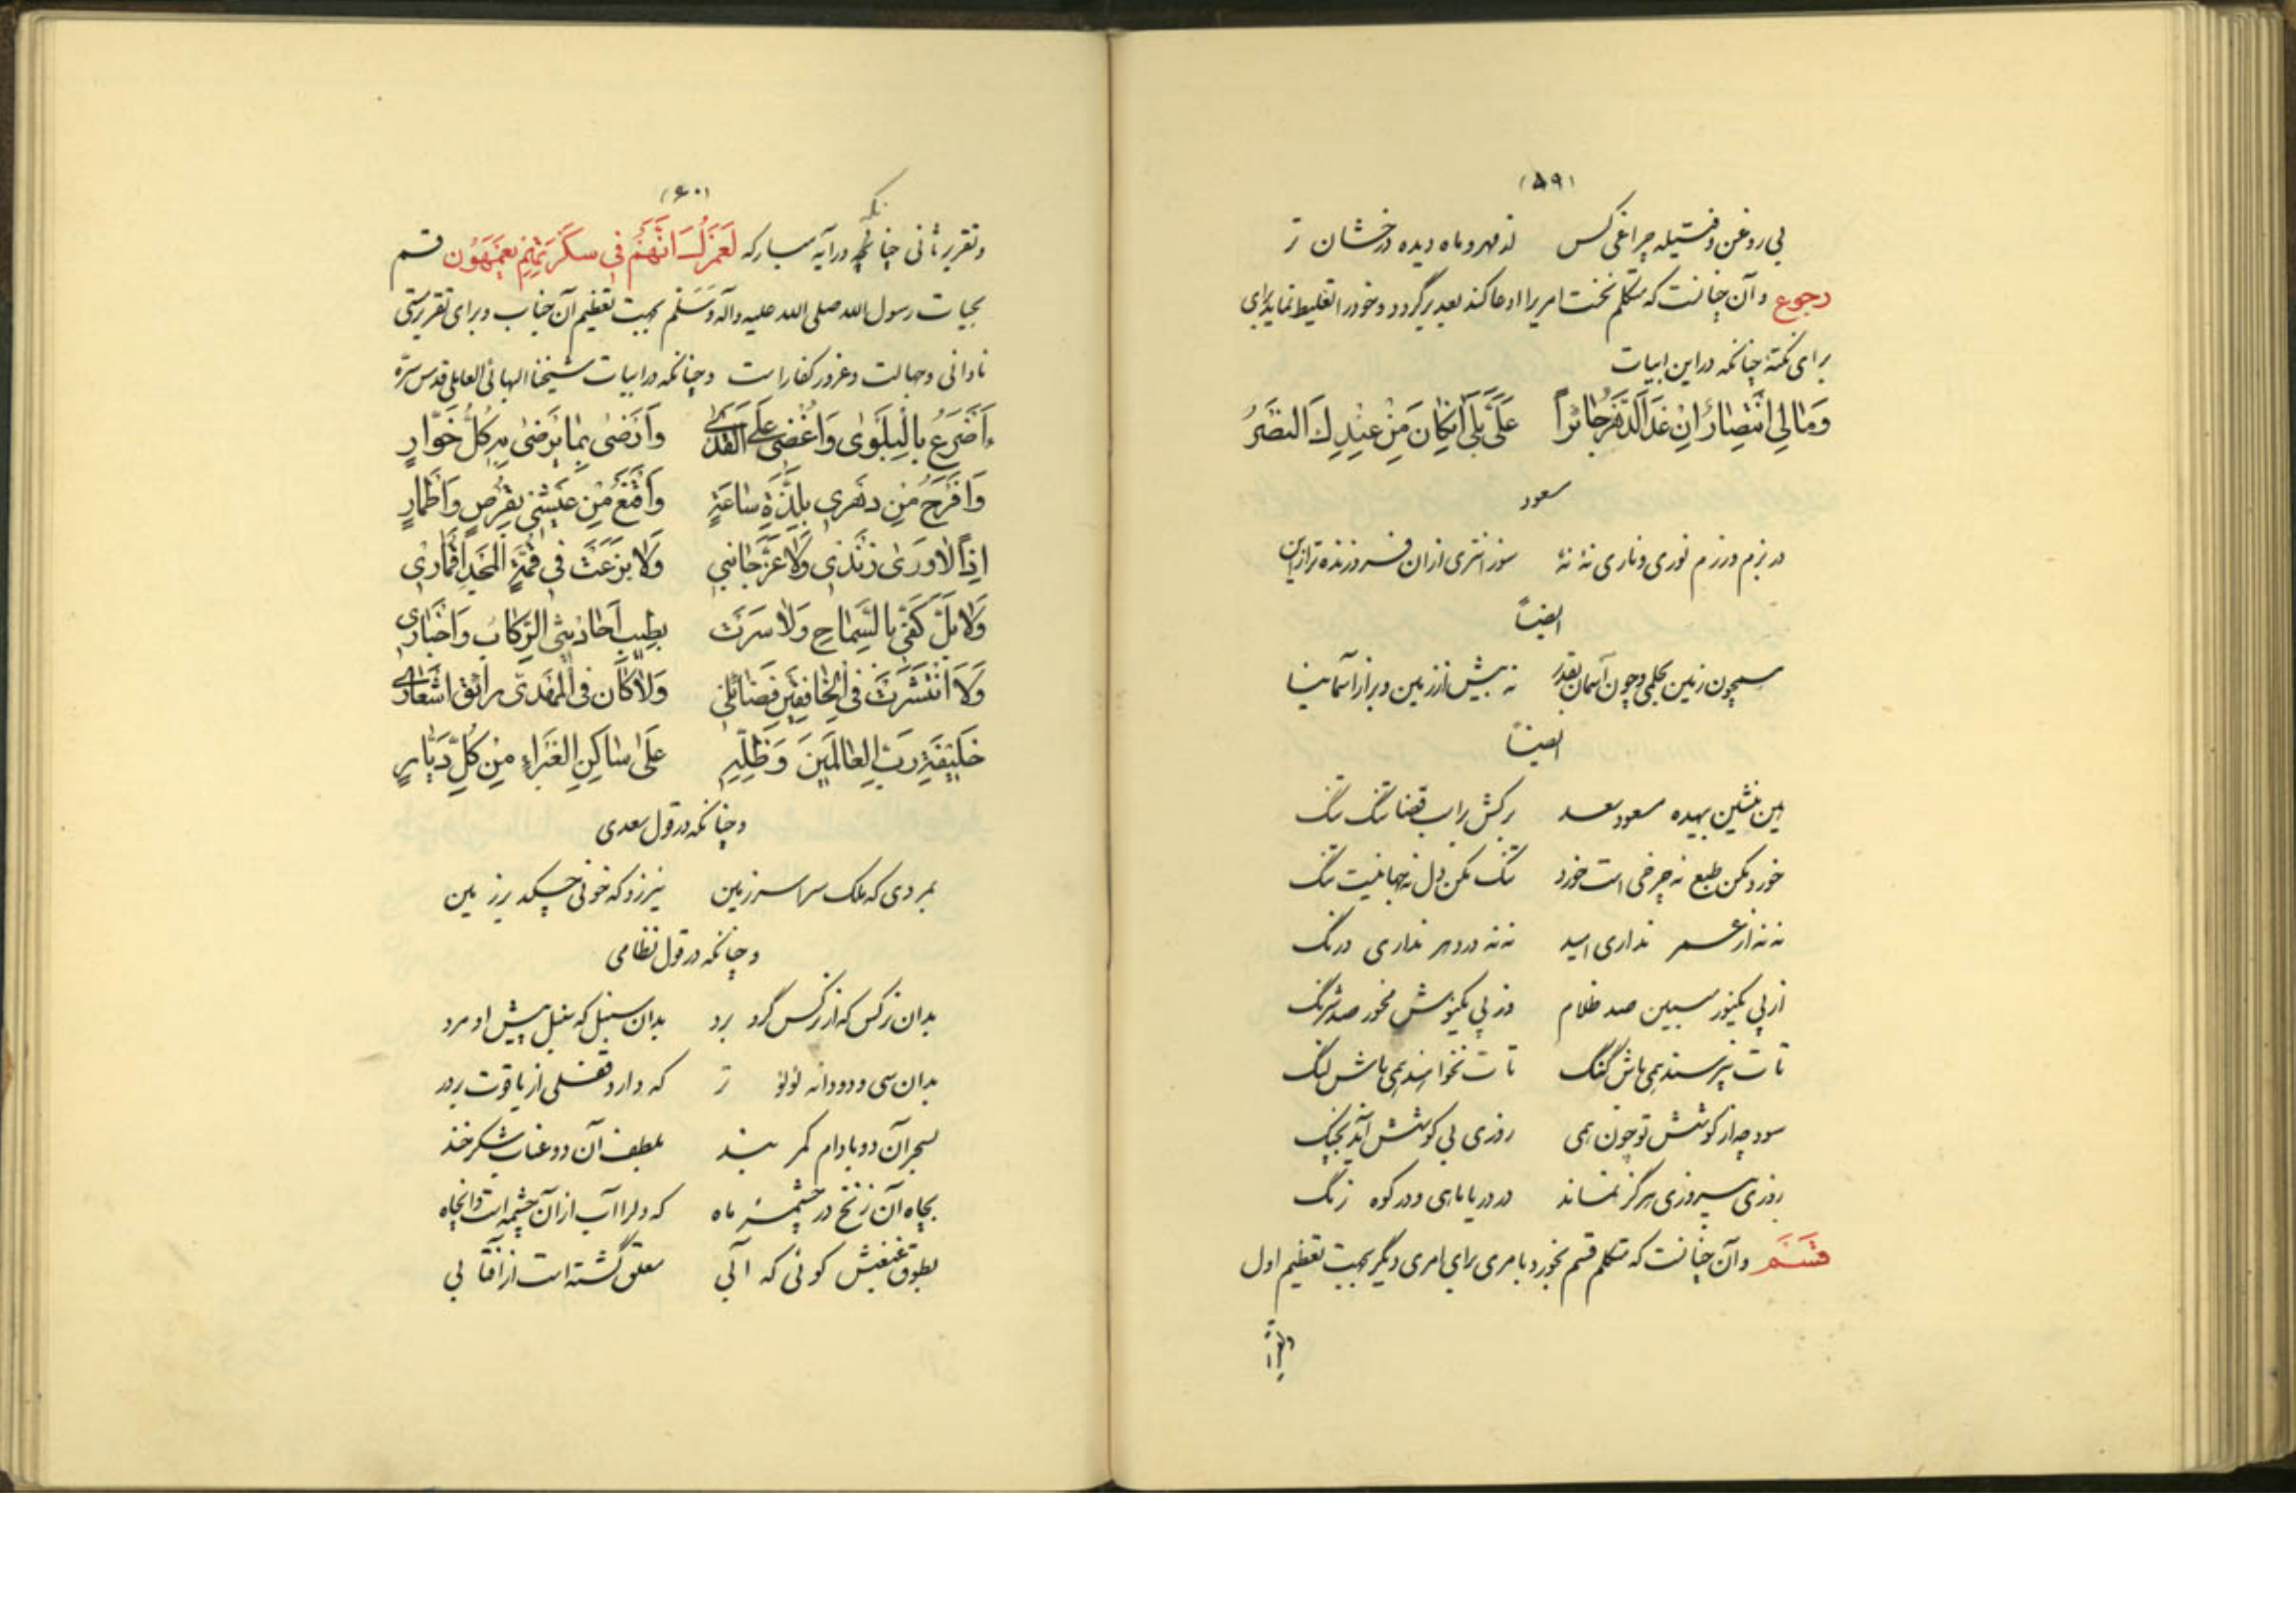 (۵۹)
بی روغن و فتیله چراغی کس از مهر و ماه دیده درخشان تر
رجوع و آن چنانست که متکلم نخست امری را ادعا کند بعد برگردد و خود را تغلیط نماید برای
برای نکتهٔ چنانکه در این ابیات
وَمَالِی انْتِصَارٌ اِنْ غَدَا الدَّهْرُ جَائِراً عَلَیَّ بَلٰی اِنْ کَانَ مِنْ عِنْدِكَ النَّصْرُ
مسعود
در بزم و رزم نوری و ناری نه نهٔ سوزانتری ازان و فروزنده تر ازین
ایضاً
همچون زمین بحلمی و چون آسمان بقدر نه بیش از زمین و بر از آسمانیا
ایضاً
هین منشین بیهده مسعود سعد برکش راسب قضا تنگ تنگ
خورد مکن طبع نه چرخی است خورد تنگ مکن دل نه جهانیست تنگ
نه نه از عمر نداری امید نه نه در دهر نداری درنگ
از پی یک نور مبین صد ظلام وز پی یک نوش مخور صد شرنگ
تات نپرسند همی باش گنگ تات نخوانند همی باش لنگ
سود چه از کوشش تو چون همی روزی بی کوشش آید بچنگ
روزی بیروزی هرگز نماند در دریا ماهی و در کوه زنگ
قَسَم و آن چنانست که متکلم قسم بخورد بامری برای امری دیگر بجهت تعظیم اول
و تقریر
(۶۰)
و تقریر ثانی چنانکه در آیه مبارکه لَعَمْرُكَ اِنَّهُمْ فِی سَکْرَتِهِمْ یَعْمَهُون قسم
بحیات رسول الله صلی الله علیه و آله وَسَلَّم بجهت تعظیم آن جناب و برای تقریر مستی
نادانی و جهالت و غرور کفار است و چنانکه در ابیات شیخنا البهائی العاملی قدس سرّه
ءَاَضْرَعُ بِالْبَلْوٰی وَاُغْضِی عَلَی الْقَذٰی وَاَرْضٰی بِمَا یَرْضٰی بِهِ کُلُّ خَوَّارِ
وَاَفْرَحُ مِنْ دَهْرِی بِلَذَّةِ سَاعَةٍ وَاَقْنَعُ مِنْ عَیْشِی بِقُرْصٍ وَاَطْمَارِ
اِذاً لَا وَرٰی زَنْدِی وَلَا عَزَّ جَانِبِی وَلَا بَزَغَتْ فِی قِمَّةِ الْمَجْدِ اَقْمَارِی
وَلَا بُلَّ کَفِّی بِالسَّمَاحِ وَلَا سَرَتْ بِطِیبِ اَحَادِیثِی الرِّکَابُ وَاَخْبَارِی
وَلَا انْتَشَرَتْ فِی الْخَافِقَیْنِ فَضَائِلِی وَلَا کَانَ فِی الْمَهْدِیِّ رَائِقُ اَشْعَارِی
خَلِیفَةِ رَبِّ الْعَالَمِینَ وَظِلِّهِ عَلٰی سَاکِنِ الْغَبْرَاءِ مِنْ کُلِّ دَیَّارِ
و چنانکه در قول سعدی
بمردی که ملک سراسر زمین نیرزد که خونی چکد بر زمین
و چنانکه در قول نظامی
بدان نرگس که از نرگس گرو برد بدان سنبل که سنبل پیش او مرد
بدان سی و دو دانه لؤلؤ تر که دارد قفلی از یاقوت بر در
بسحر آن دو بادام کمر بند بلطف آن دو عناب شکر خند
بچاه آن زنخ در چشمهٔ ماه که دل را آب از آن چشمه است و آنچاه
بطوق غبغبش کوئی که آبی معلق گشته است از آفتابی